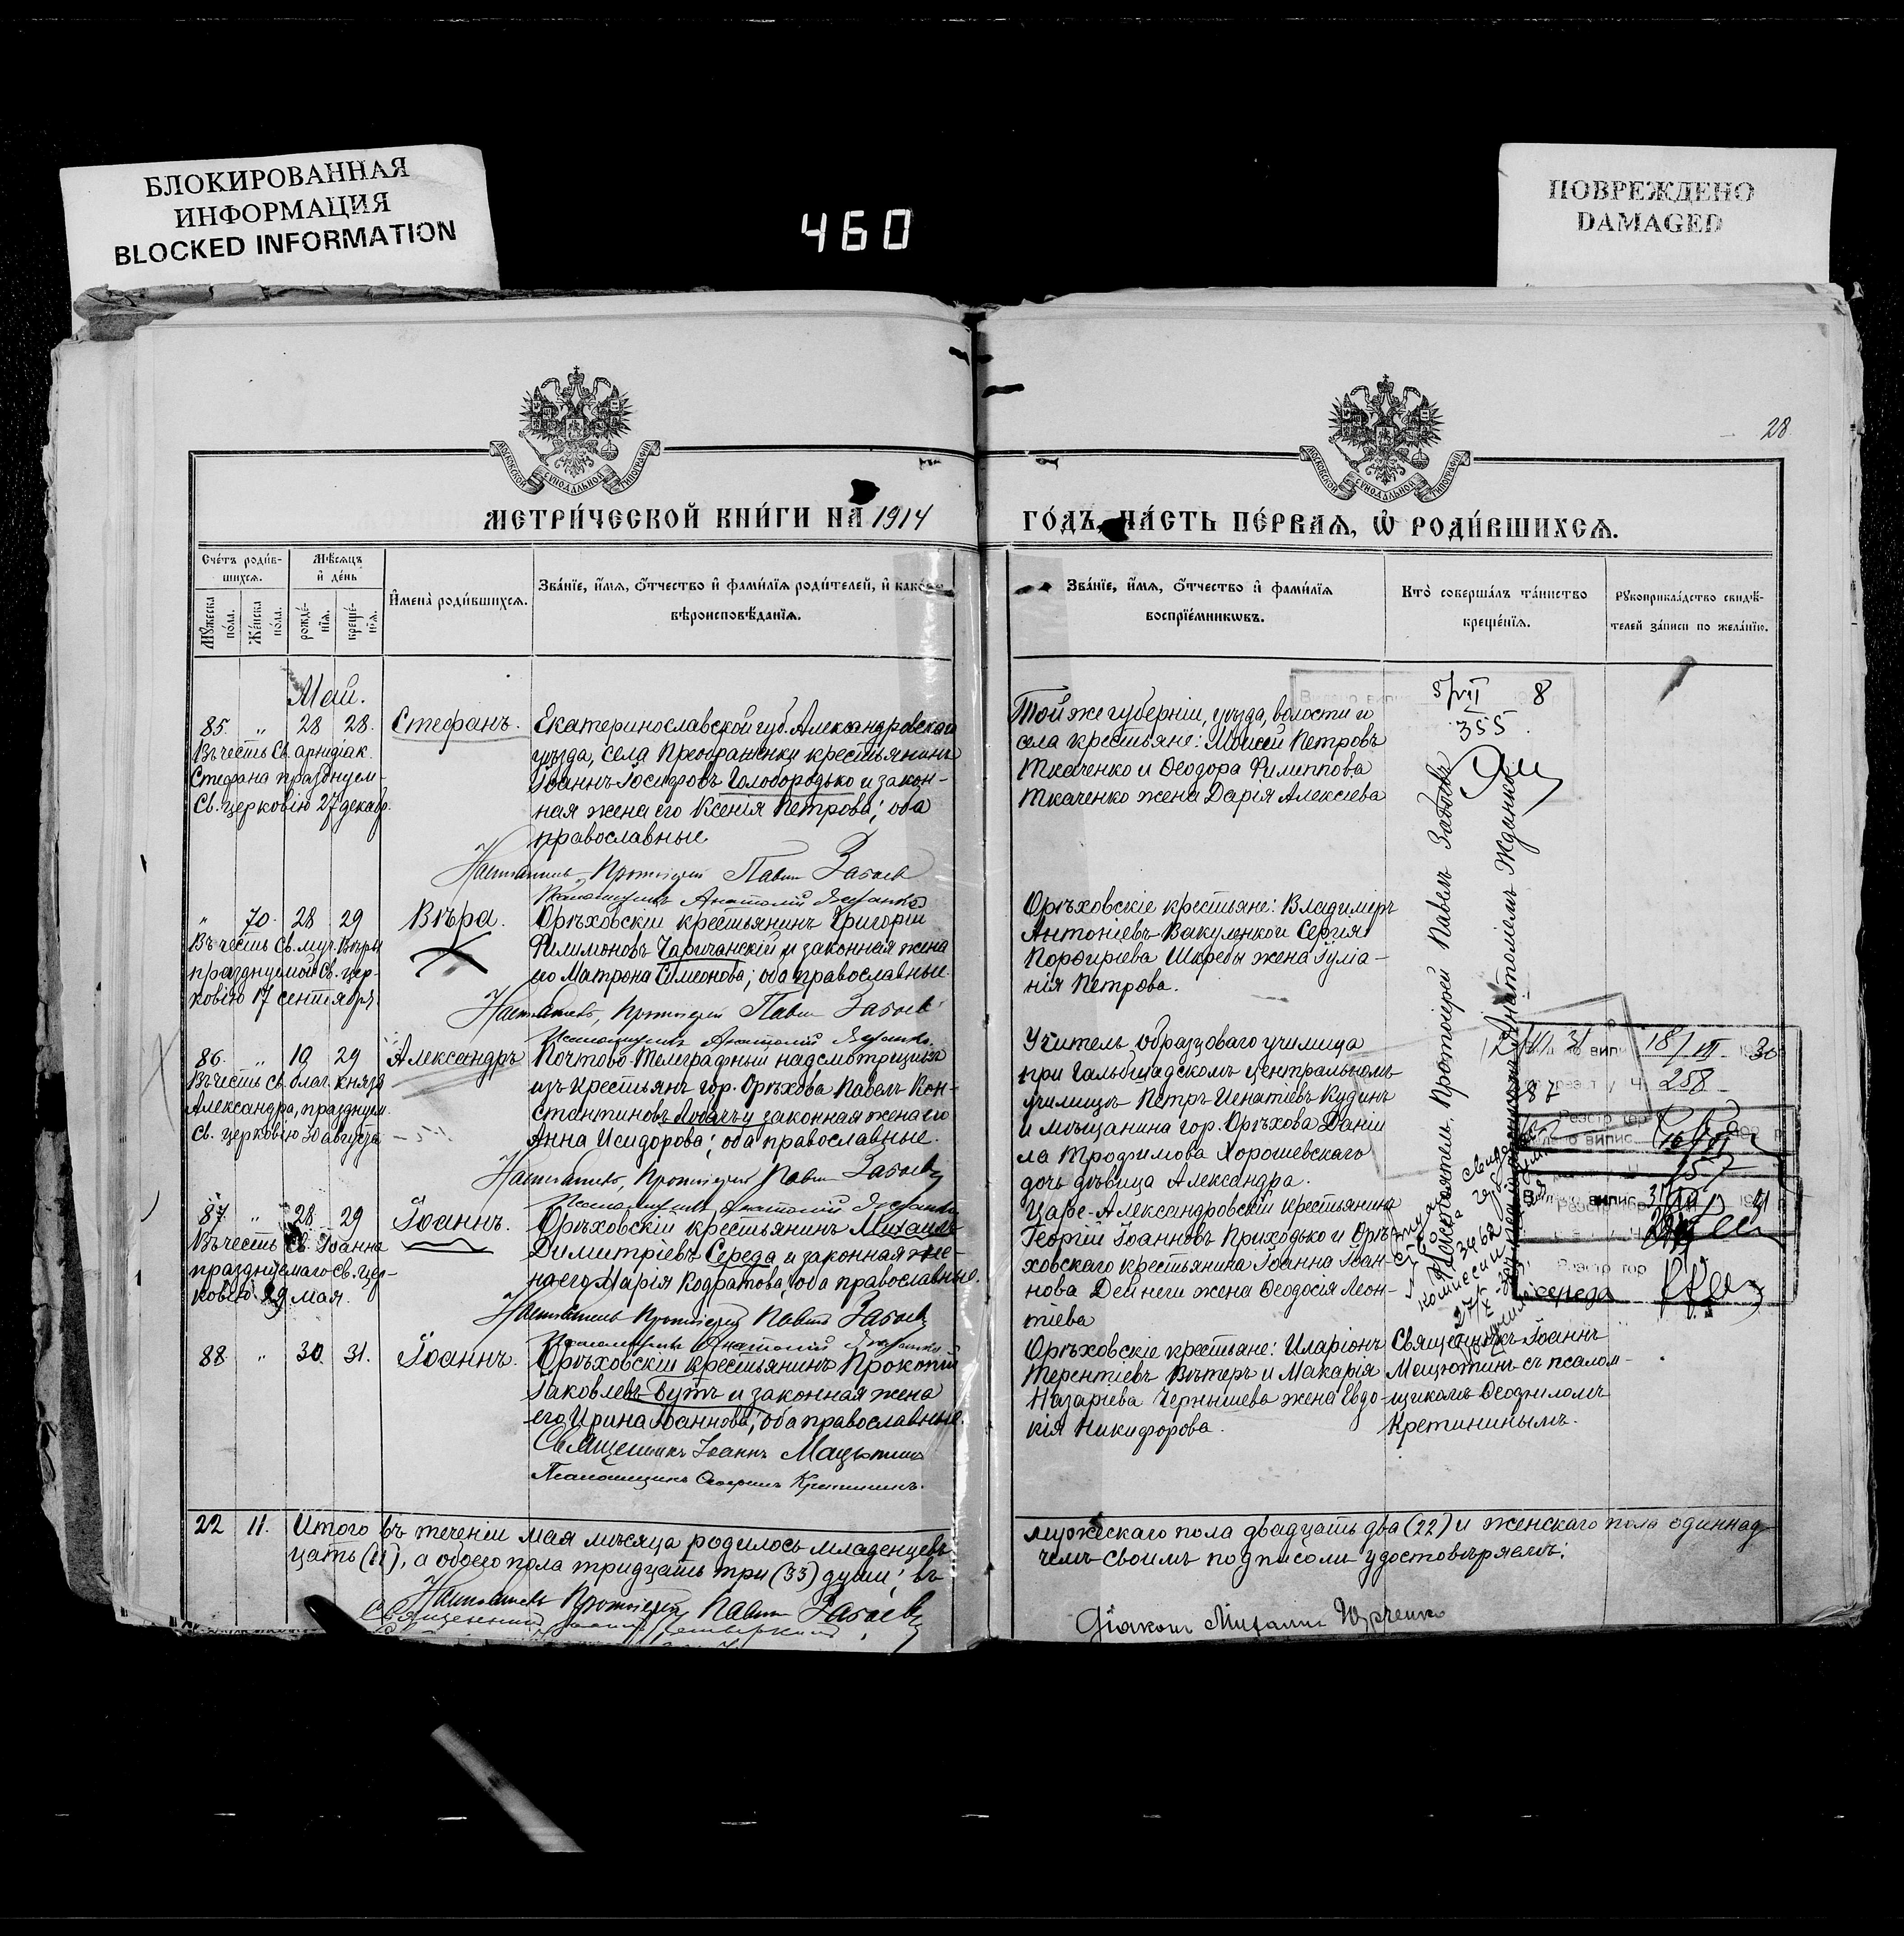 БЛОКИРОВАННАЯ
ИНФОРМАЦИЯ
BLOCKED INFORMATION
460
ПОВРЕЖДЕНО
DAMAGED
28
МОСКОВСКОЙ СУНОДАЛЬНОЙ ТИПОГРАФІИ
МОСКОВСКОЙ СУНОДАЛЬНОЙ ТИПОГРАФІИ
МЕТРИ́ЧЕСКОЙ КНИ́ГИ НА 1914
ГО́ДЪ, ЧА́СТЬ ПЕ́РВАЯ, Ѡ РОДИ́ВШИХСЯ.
Сче́тъ роди́в-
шихся.
Му́жеска по́ла.
Же́нска по́ла.
Мѣ́сяцъ
и де́нь
рожде́-
нїя.
креще́-
нїя.
И́мена̀ роди́вшихся.
Зва́нїе, и́мя, о́тчество и фами́лїя роди́телей, и како́го
вѣроисповѣ́данїя.
Зва́нїе, и́мя, о́тчество и фами́лїя
воспрїе́мниковъ.
Кто̀ соверша́лъ та́инство
креще́нїя.
Рукоприкла́дство свидѣ́-
телей за́писи по жела́нїю.
Май.
85. " 28 28.
Въ честь Св. архидіак.
Стефана празднуем.
Св. церковію 27 декаб.
Стефанъ.
Екатеринославской губ. Александровскаго
уѣзда, села Преображенки крестьянинъ
Іоаннъ Іосифовъ Голобородько и закон-
ная жена его Ксенія Петрова; оба
православные
Настоятель, Протоіерей Павелъ Забаев
Псаломщикъ Анатолій
Той же губерніи, уѣзда, волости и
села крестьяне: Моисей Петровъ
Ткаченко и Ѳеодора Филиппова
Ткаченко жена Дарія Алексіева
5/VII 8
355.
" 70. 28 29
Въ честь Св. муч. Вѣры
празднуемой Св. цер-
ковію 17 сентября.
Вѣра.
Орѣховскій крестьянинъ Григорій
Филимоновъ Чаричанскій и законная жена
его Матрона Симеонова; оба православные.
Настоятель, Протоіерей Павелъ Забаев
Псаломщикъ Анатолій
Орѣховскіе крестьяне: Владимеръ
Антоніевъ Вакуленко и Сергія
Порфиріева Шкребы жена Іуліа-
нія Петрова.
86. " 19 29
Въ честь Св. благ. князя
Александра, празднуем.
Св. церковію 30 августа
Александръ
Почтово-Телеграфный надсмотрщикъ
изъ крестьянъ гор. Орѣхова Павелъ Кон-
стантиновъ законная жена его
Анна Исидорова; оба православные.
Настоятель, Протоіерей Павелъ Забаев
Псаломщикъ Анатолій
Учитель образцоваго училища
при Гальбштадскомъ центральномъ
училищѣ Петръ Игнатіевъ Кудинъ
и мѣщанина гор. Орѣхова Даніи
ла Трофимова Хорошевскаго
дочь дѣвица Александра.
87. " 28. 29
Въ честь Св. Іоанна
празднуемаго Св. цер-
ковію 29 мая.
Іоаннъ.
Орѣховскій крестьянинъ Михаилъ
Димитріевъ Середа и законная же-
на его Марія Кодратова, оба православные.
Настоятель Протоіерей Павелъ Забаев
Псаломщикъ Анатолій
Царе-Александровскій крестьянинъ
Георгій Іоанновъ Приходько и Орѣ-
ховскаго крестьянина Іоанна Іоан-
нова Демнеги жена Ѳеодосія Леон-
тіева
Настоятель, Протоіерей Павелъ Забаевъ
18/VII 30
258
87
157
середа
88 " 30. 31.
Іоаннъ.
Орѣховскій крестьянинъ Прокопій
Іаковлевъ Бутъ и законная жена
его Ирина Іоаннова; оба православные.
Священникъ Іоаннъ Мацютинъ
Псаломщикъ Ѳеофилъ Кретининъ.
Орѣховскіе крестьяне: Иларіонъ
Терентіевъ Вѣтеръ и Макарія
Назаріева Чернышева жена Евдо-
кія Никифорова.
Священникъ Іоаннъ
Мацютинъ съ псалом-
щикомъ Ѳеофиломъ
Кретининымъ.
22 11. Итого въ теченіи мая мѣсяца родилось младенцевъ
мужескаго пола двадцать два (22) и женскаго пола одиннад-
цать (11), а обоего пола тридцать три (33) души; въ
чемъ своимъ подписомъ удостовѣряемъ:
Настоятель Протоіерей Павелъ Забаевъ
Священникъ
Діаконъ Михаилъ Юрченко